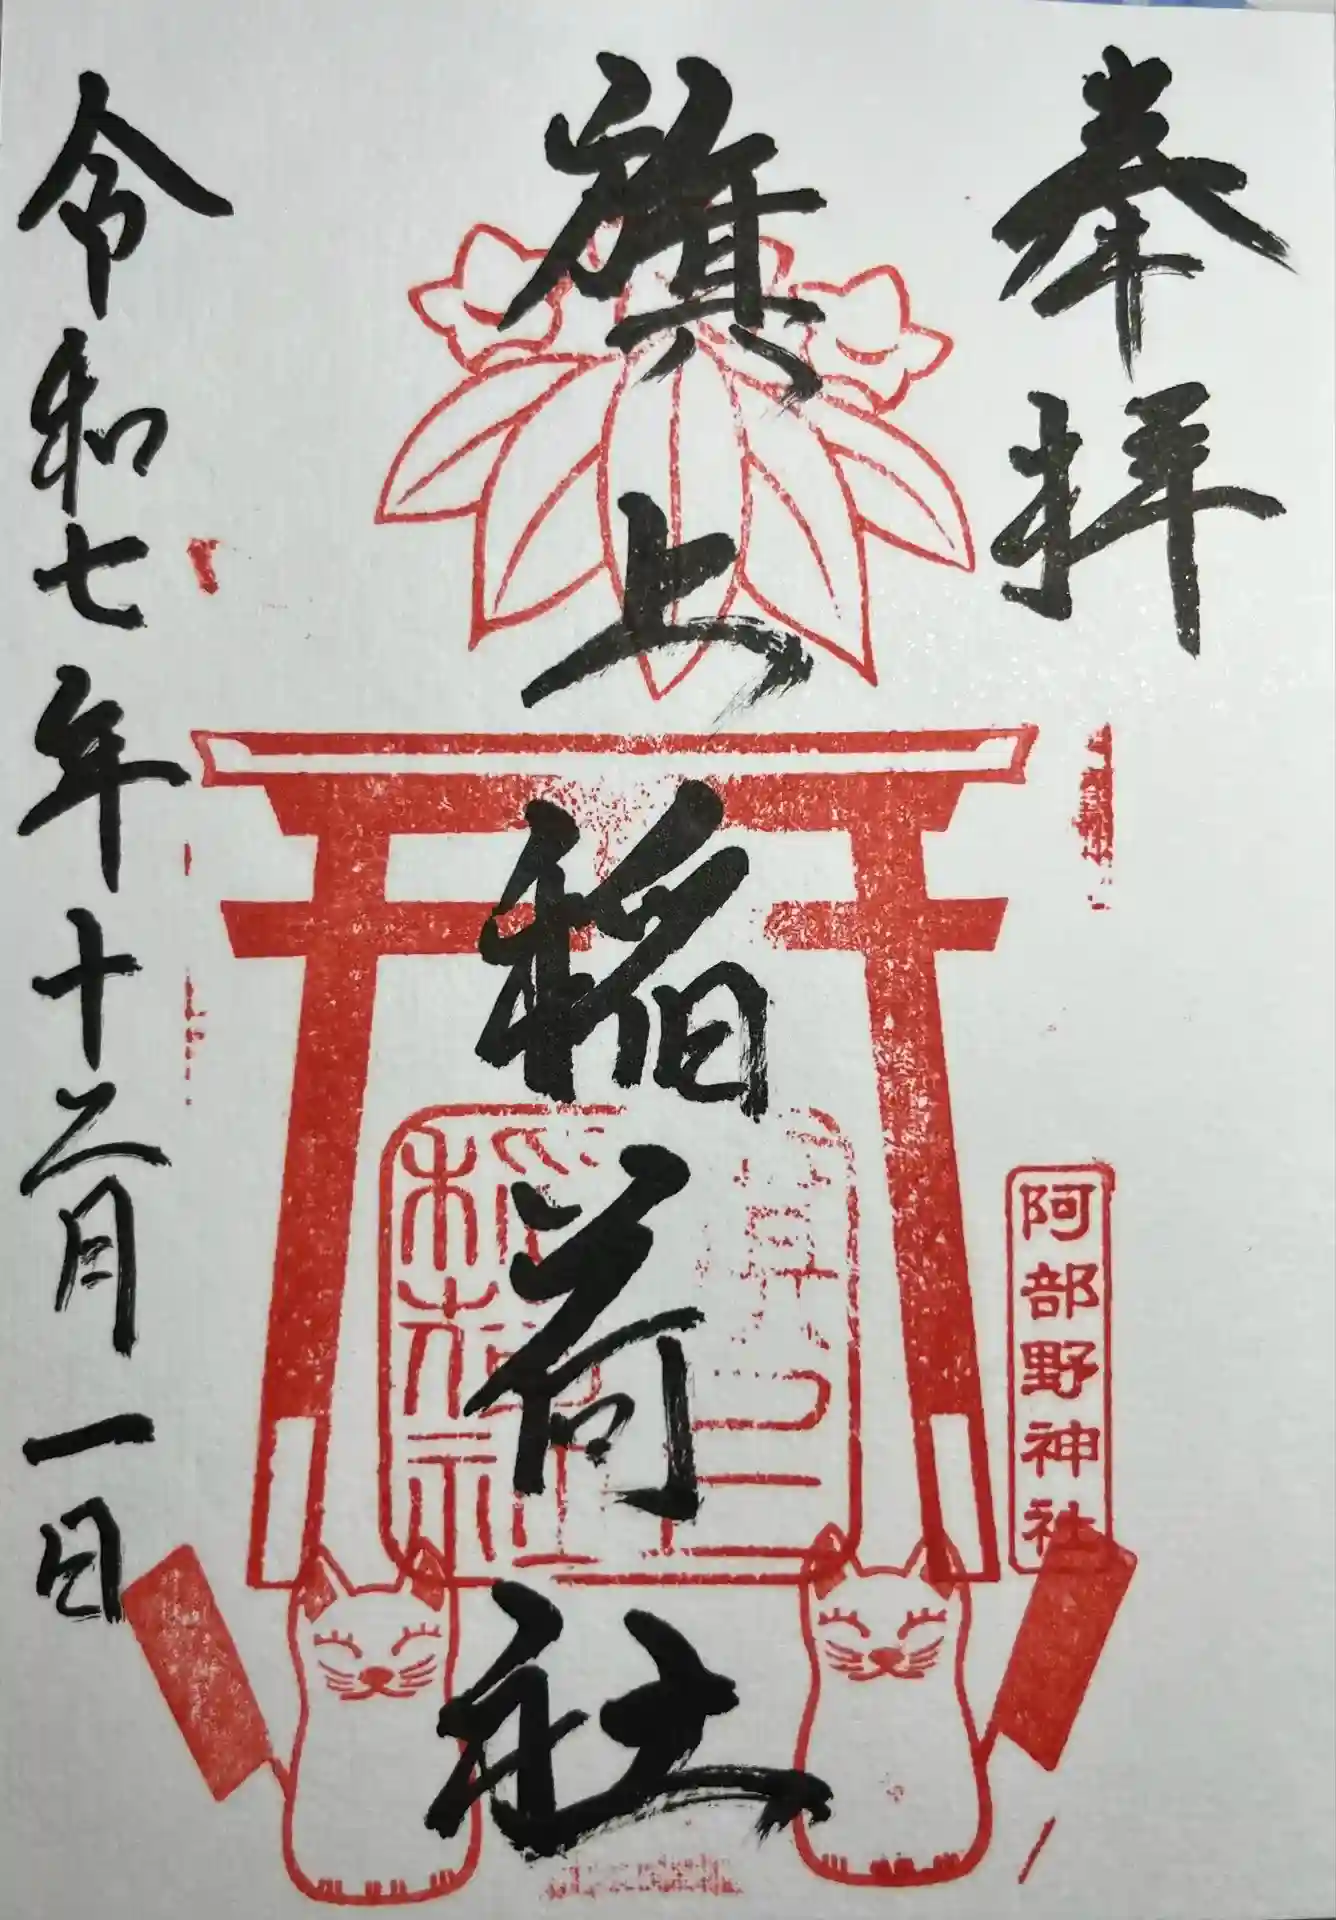 奉拝
阿部野神社
旗上稲荷社
旗上
稲荷社
令和七年十二月一日